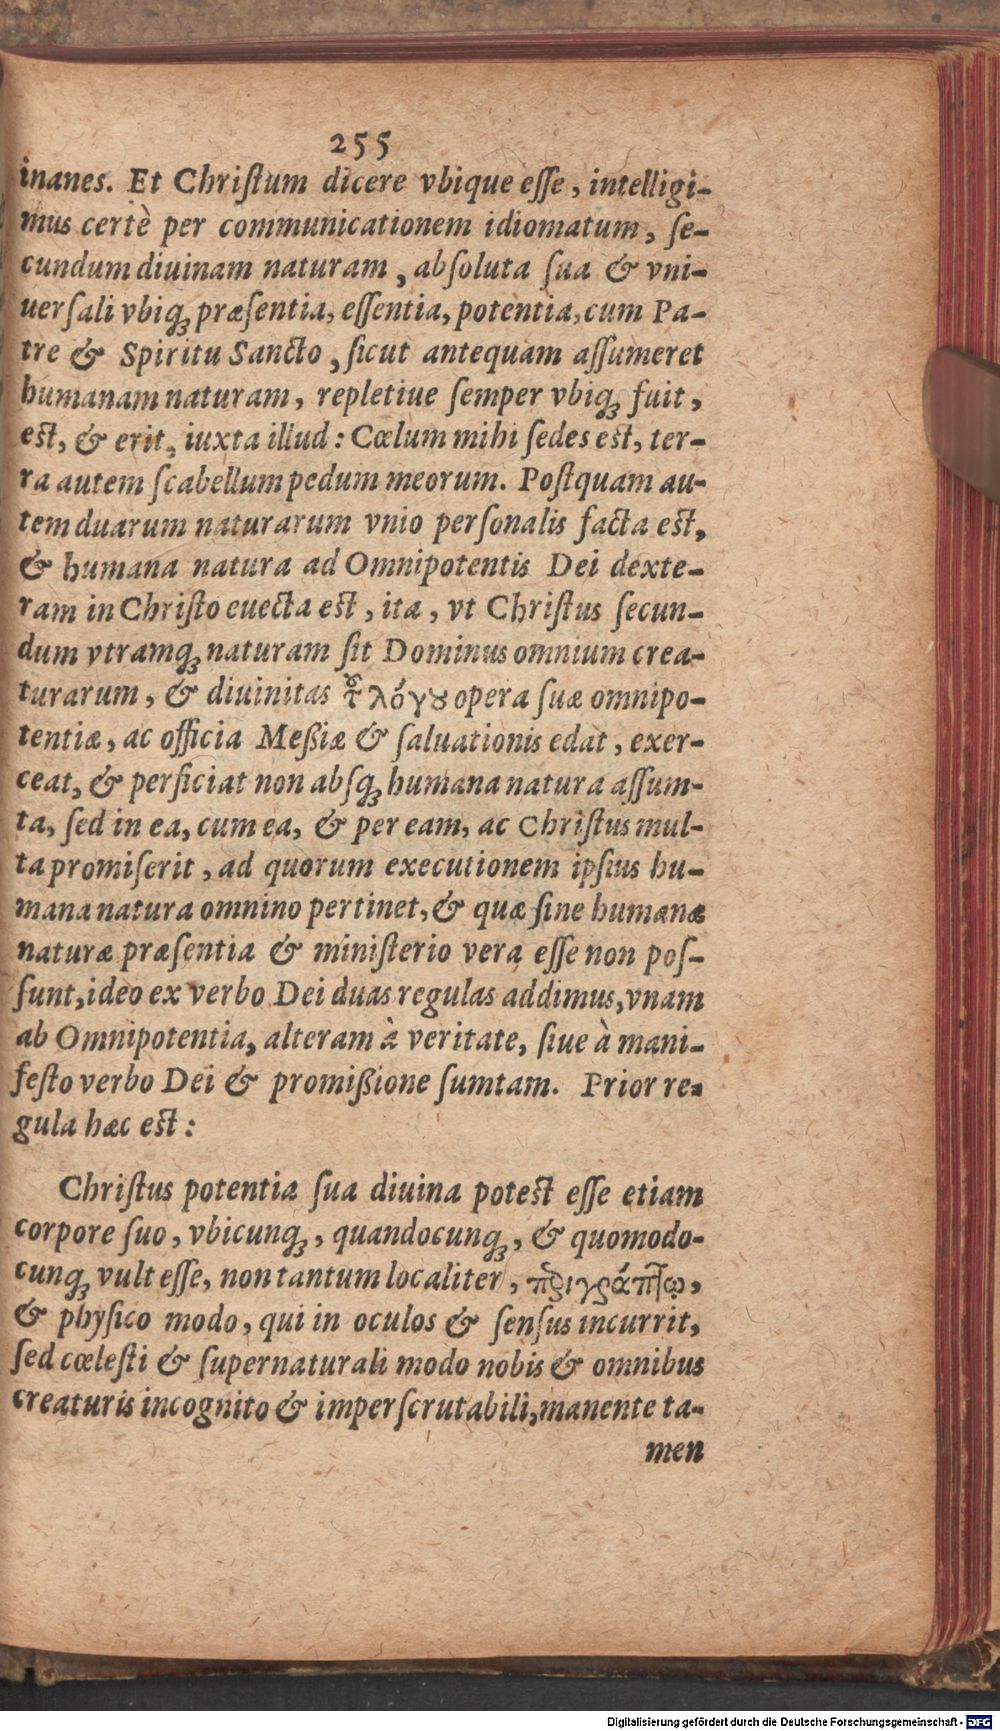 255
inanes. Et Chriſtum dicere vbique eſſe, intelligi-
mus certè per communicationem idiomatum, ſe-
cundum diuinam naturam, abſoluta ſua & vni-
uerſali vbiq; præſentia, eſſentia, potentia, cum Pa-
tre & Spiritu Sancto, ſicut antequam aſſumeret
humanam naturam, repletiue ſemper vbiq; fuit,
est, & erit, iuxta illud: Cœlum mihi ſedes est, ter-
ra autem ſcabellum pedum meorum. Poſtquam au-
tem duarum naturarum vnio perſonalis facta est,
& humana natura ad Omnipotentis Dei dexte-
ram in Chriſto euecta est, ita, vt Chriſtus ſecun-
dum vtramq; naturam ſit Dominus omnium crea-
turarum, & diuinitas τȣ͂ λόγȣ opera ſuæ omnipo-
tentiæ, ac officia Meßiæ & ſaluationis edat, exer-
ceat, & perficiat non abſq; humana natura aſſum-
ta, ſed in ea, cum ea, & per eam, ac Chriſtus mul-
ta promiſerit, ad quorum executionem ipſius hu-
mana natura omnino pertinet, & quæ ſine humanæ
naturæ præſentia & miniſterio vera eſſe non poſ-
ſunt, ideo ex verbo Dei duas regulas addimus, vnam
ab Omnipotentia, alteram à veritate, ſiue à mani-
feſto verbo Dei & promißione ſumtam. Prior re-
gula hæc est:
Chriſtus potentia ſua diuina potest eſſe etiam
corpore ſuo, vbicunq;, quandocunq;, & quomodo-
cunq; vult eſſe, non tantum localiter, περιγράπτῳ,
& phyſico modo, qui in oculos & ſenſus incurrit,
ſed cœleſti & ſupernaturali modo nobis & omnibus
creaturis incognito & imperſcrutabili, manente ta-
men
Digitalisierung gefördert durch die Deutsche Forschungsgemeinschaft - DFG